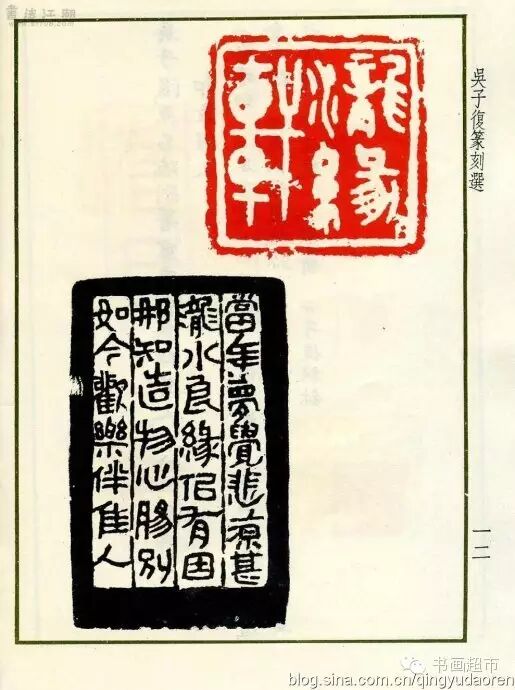 書法江湖
瀧緣軒
吳子復篆刻選
當年夢覺悲涼甚
瀧水良緣佀有因
那知造物心腸別
如今歡樂伴佳人
一二
书画超市
blog.sina.com.cn/qingyudaoren